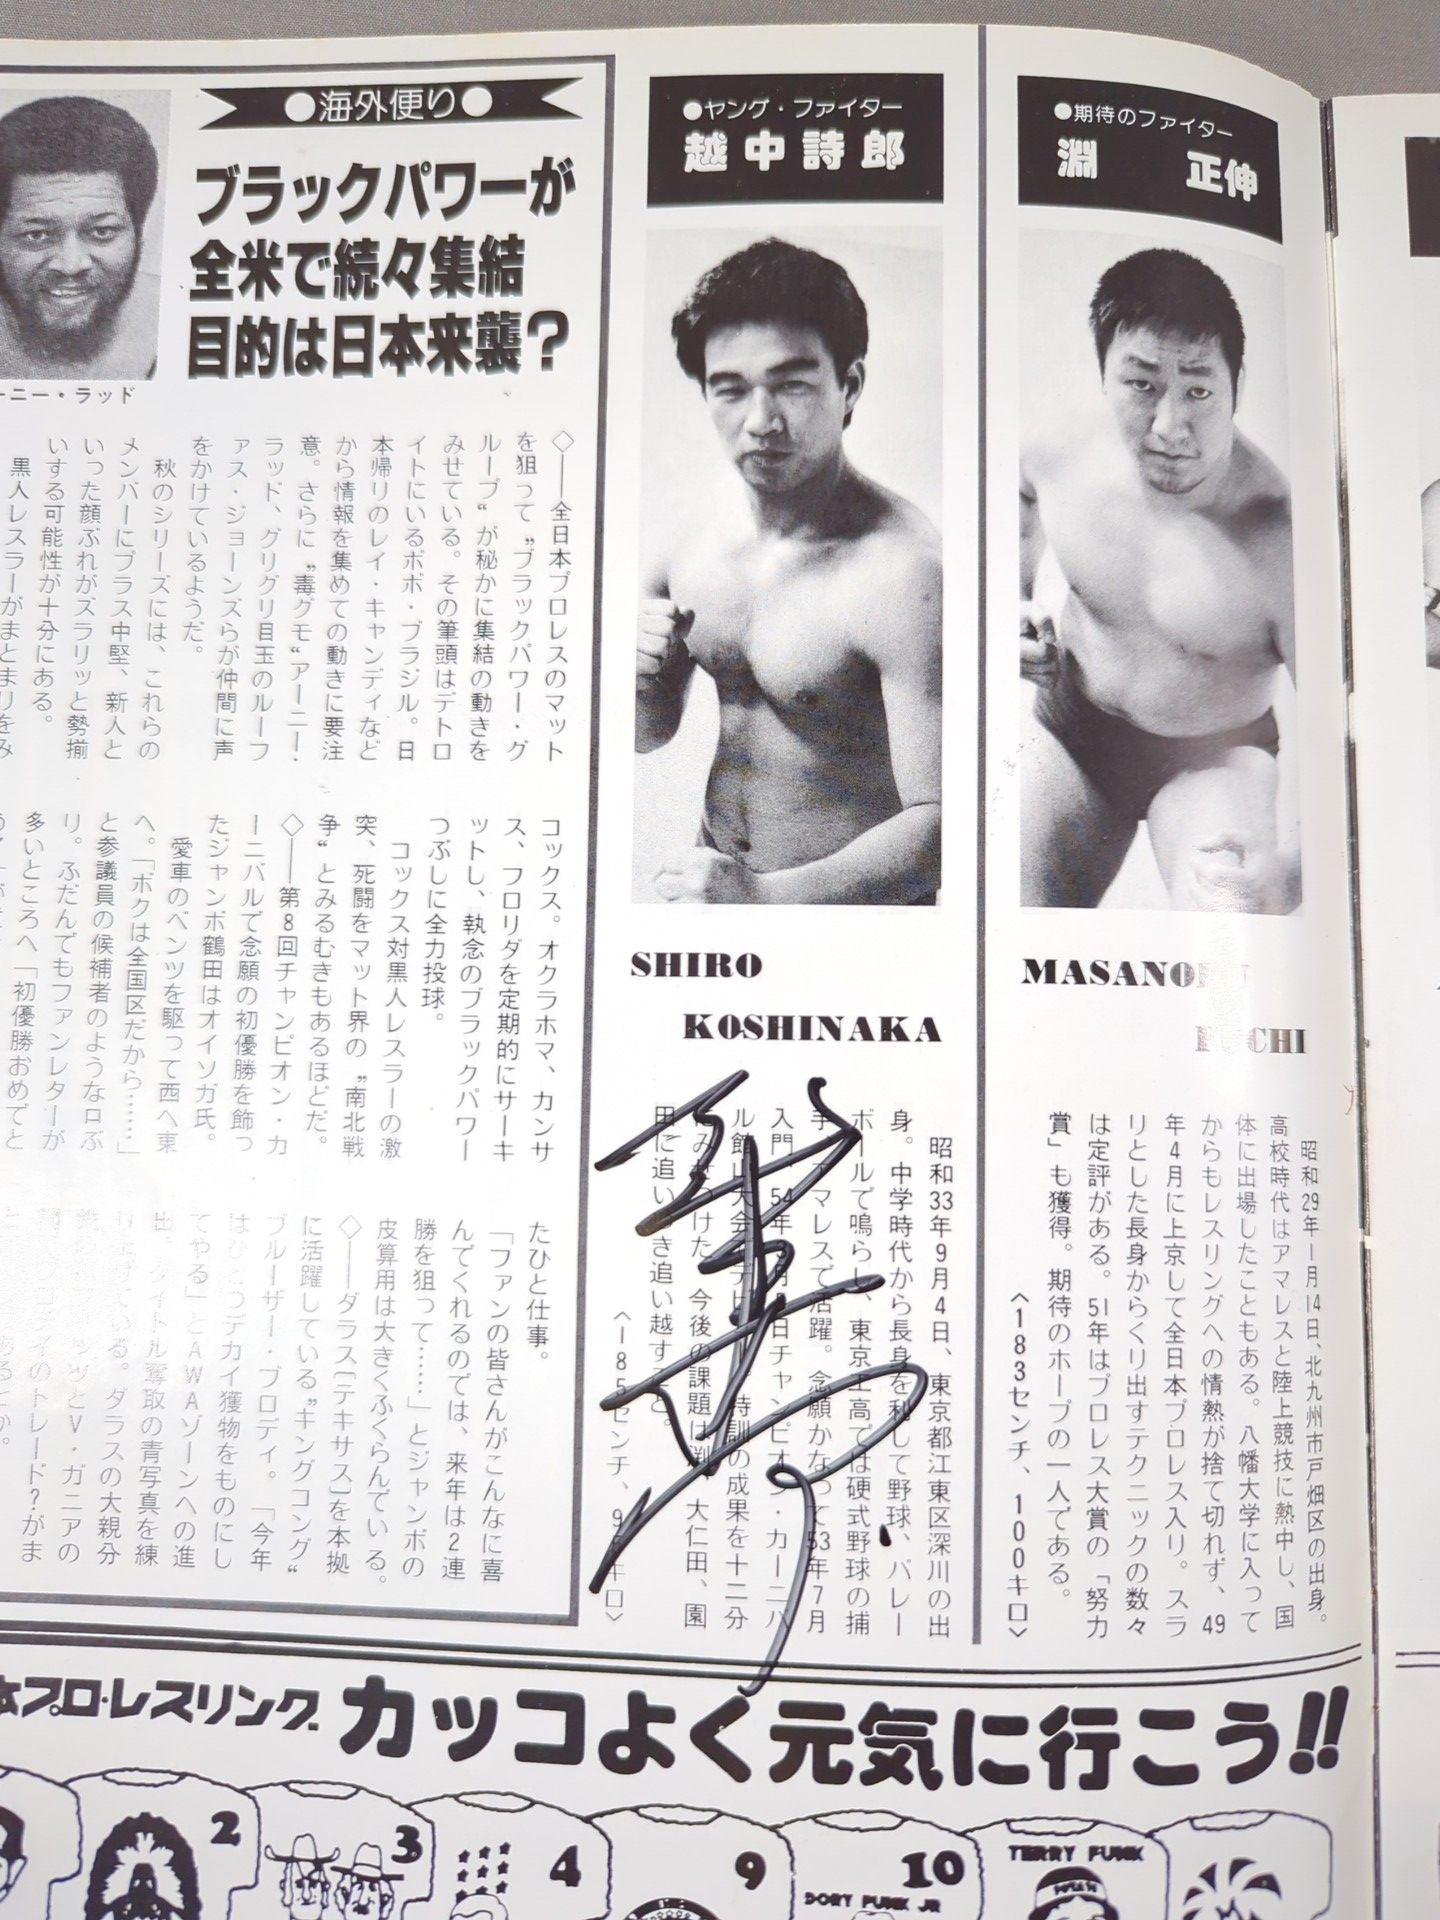 ●期待のファイター
淵 正伸
MASANO
CHI
昭和29年1月14日、北九州市戸畑区の出身。
高校時代はアマレスと陸上競技に熱中し、国
体に出場したこともある。八幡大学に入って
からもレスリングへの情熱が捨て切れず、49
年4月に上京して全日本プロレス入り。スラ
リとした長身からくり出すテクニックの数々
は定評がある。51年はプロレス大賞の「努力
賞」も獲得。期待のホープの一人である。
〈183センチ、100キロ〉
●ヤング・ファイター
越中詩郎
SHIRO
KOSHINAKA
昭和33年9月4日、東京都江東区深川の出
身。中学時代から長身を利して野球、バレー
ボールで鳴らし、東京工高では硬式野球の捕
手、アマレスで活躍。念願かなって53年7月
入門、54年3月 日チャンピオン・カーニバ
ル館山大会でデビュー。特訓の成果を十二分
にみせつけた。今後の課題は渕、大仁田、園
田に追いつき追い越すこと。
〈185センチ、9 キロ〉
●海外便り●
ブラックパワーが
全米で続々集結
目的は日本来襲？
ーニー・ラッド
◇──全日本プロレスのマット
を狙って〝ブラックパワー・グ
ループ〟が秘かに集結の動きを
みせている。その筆頭はデトロ
イトにいるボボ・ブラジル。日
本帰りのレイ・キャンディなど
から情報を集めての動きに要注
意。さらに〝毒グモ〟アーニー・
ラッド、グリグリ目玉のルーフ
ァス・ジョーンズらが仲間に声
をかけているようだ。
秋のシリーズには、これらの
メンバーにプラス中堅、新人と
いった顔ぶれがズラリッと勢揃
いする可能性が十分にある。
黒人レスラーがまとまりをみ
コックス。オクラホマ、カンサ
ス、フロリダを定期的にサーキ
ットし、執念のブラックパワー
つぶしに全力投球。
コックス対黒人レスラーの激
突、死闘をマット界の〝南北戦
争〟とみるむきもあるほどだ。
◇──第8回チャンピオン・カ
ーニバルで念願の初優勝を飾っ
たジャンボ鶴田はオイソガ氏。
愛車のベンツを駆って西へ東
へ。「ボクは全国区だから……」
と参議員の候補者のような口ぶ
り。ふだんでもファンレターが
多いところへ「初優勝おめでと
たひと仕事。
「ファンの皆さんがこんなに喜
んでくれるのでは、来年は2連
勝を狙って……」とジャンボの
皮算用は大きくふくらんでいる。
◇──ダラス〔テキサス〕を本拠
に活躍している〝キングコング〟
ブルーザー・ブロディ。「今年
はひとつデカイ獲物をものにし
てやる」とAWAゾーンへの進
出 タイトル奪取の青写真を練
っている。ダラスの大親分
ッツとV・ガニアの
ロディのトレード？がま
本プロ・レスリング カッコよく元気に行こう!!
2
3
4
9
10
DORY FUNK JR
TERRY FUNK